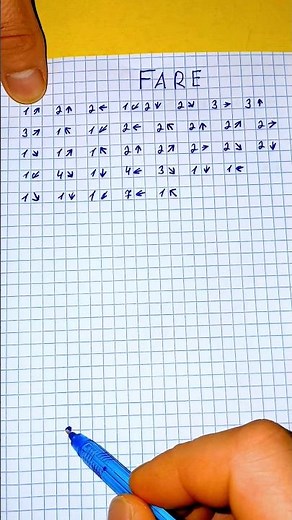 FARE
1↗ 2↑ 2← 1↙ 2↓ 2↘ 3→ 3↑
3↗ 1↖ 1↙ 2← 2↖ 2↑ 2↗ 2→
1↘ 1↗ 1↖ 2↑ 2↗ 2→ 2↘ 2↓
1↙ 4↘ 1↓ 4← 3↘ 1↓ 1←
1↘ 1↓ 1↙ 7← 1↖